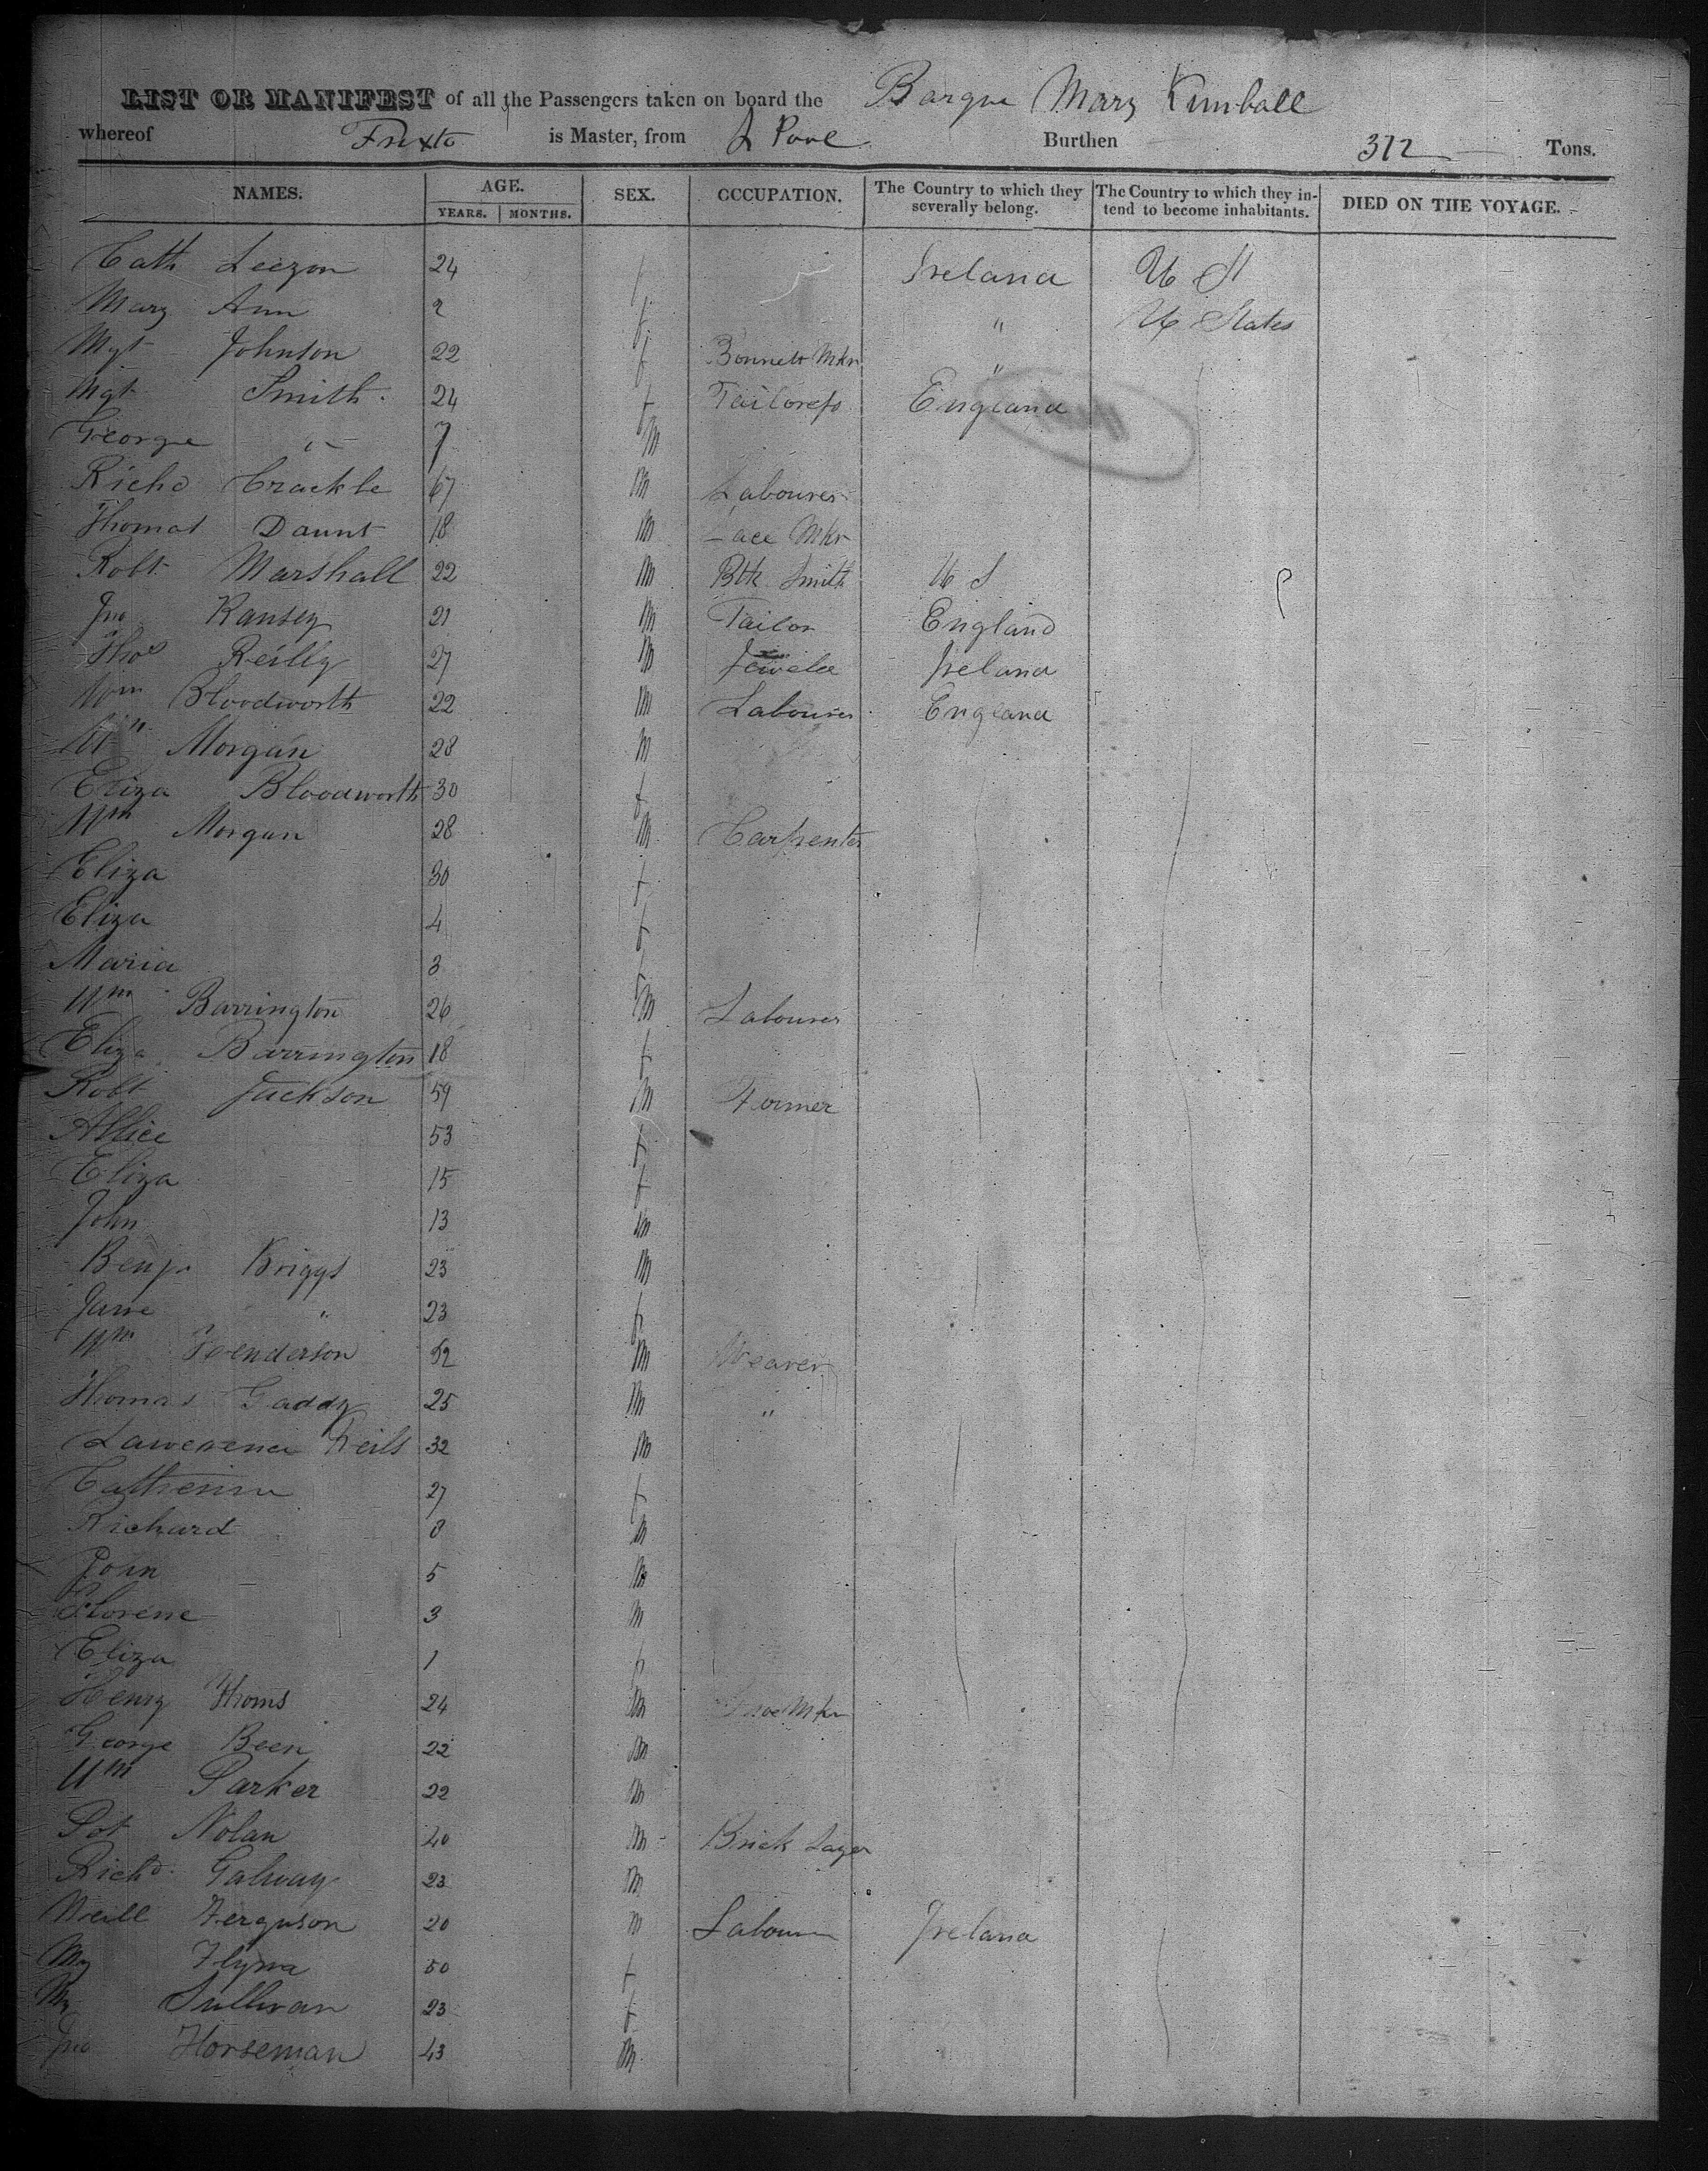 LIST OR MANIFEST of all the Passengers taken on board the Barque Mary Kimball
whereof is Master, from L Pool Burthen 312 Tons.
NAMES. AGE. SEX. OCCUPATION. The Country to which they severally belong. The Country to which they intend to become inhabitants. DIED ON THE VOYAGE.
YEARS. MONTHS.
Cath Leezon 24 f Ireland U St
Mary Ann 2 f " U States
Mgt Johnson 22 f Bonnett Mkr "
Mgt Smith 24 f Tailoress England
George " 7 m
Richd Crackle 67 m Labourer
Thomas Daunt 18 m Lace Mkr
Robt Marshall 22 m Blk Smith U S
Jno Ransey 21 m Tailor England
Thos Reilly 27 m Jeweler Ireland
Wm Bloodworth 22 m Labourer England
Wm Morgan 28 m
Eliza Bloodworth 30 f
Wm Morgan 28 m Carpenter
Eliza 30 f
Eliza 4 f
Maria 3 f
Wm Barrington 26 m Labourer
Eliza Barrington 18 f
Robt Jackson 59 m Farmer
Allice 53 f
Eliza 15 f
John 13 m
Benjn Briggs 23 m
Jane " 23 f
Wm Henderson 52 m Weaver
Thomas Gaddy 25 m "
Lawerence Neils 32 m
Catherine 27 f
Richard 8 m
John 5 m
Florene 3 m
Eliza 1 f
Henry Thoms 24 m Shoe Mkr
George Been 22 m
Wm Parker 22 m
Pat Nolan 40 m Brick Layer
Richd Galway 23 m
Neill Ferguson 20 m Labourer Ireland
My Flynn 50 f
My Sullivan 23 f
Jno Horseman 43 m